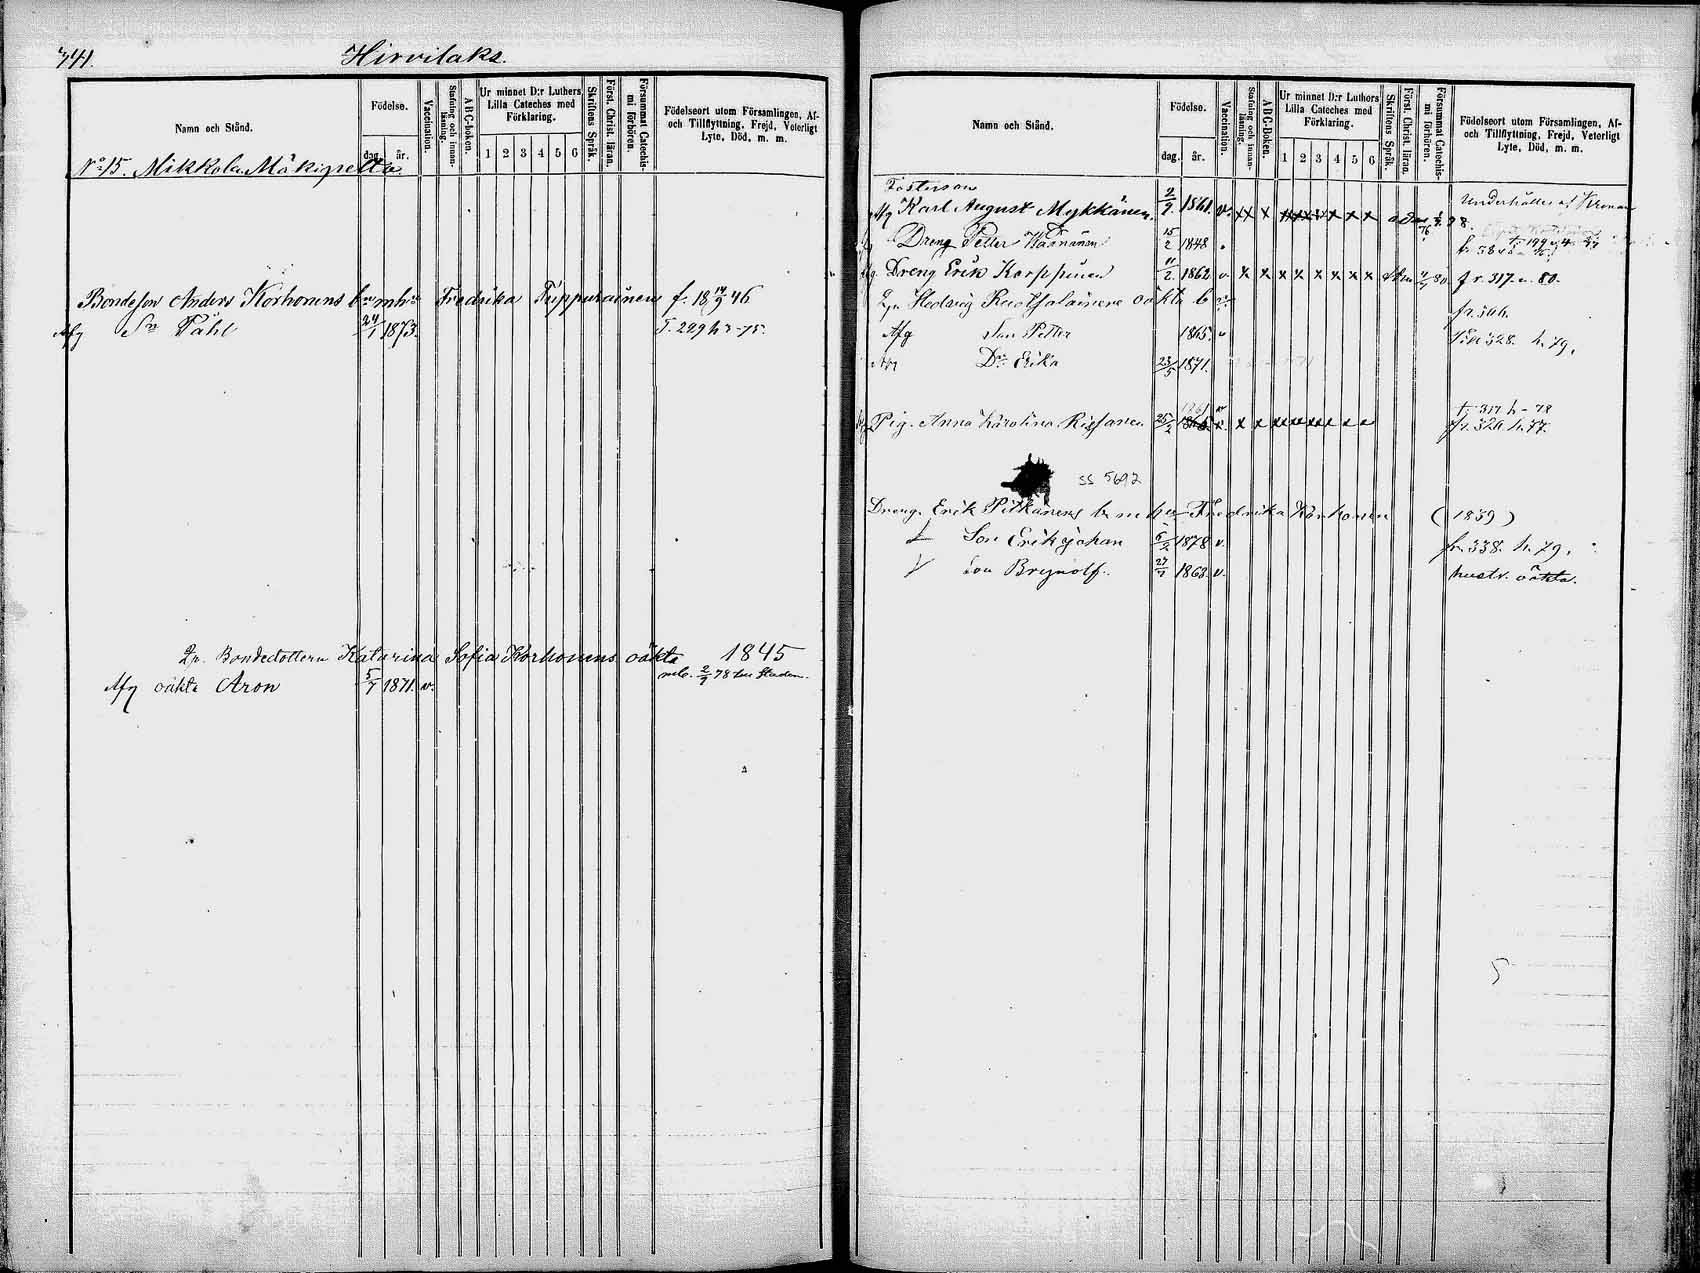 341.
Hirvilaks.
Namn och Stånd.
Födelse.
dag. år.
Vaccination.
Stafning och innan-läsning.
A B C-boken.
Ur minnet D:r Luthers Lilla Cateches med Förklaring.
1 2 3 4 5 6
Skriftens Språk.
Först. Christ. läran.
Försummat Catechis-mi förhören.
Födelseort utom Församlingen, Af- och Tillflyttning, Frejd, Veterligt Lyte, Död, m. m.
No 15. Mikkola Mäkipelto
Bondeson Anders Korhonens b mh Fredrika Tuppurainens f. 18 19/9 46
Afg Sn Påhl 24/1 1873. T. 229 h - 75.
Bondedottern Katarina Sofia Korhonens oäkta 1845
Afg oäkta Aron 5/7 1871. v. 2/9 78 Staden.
Namn och Stånd.
Födelse.
dag. år.
Vaccination.
Stafning och innan-läsning.
A B C-boken.
Ur minnet D:r Luthers Lilla Cateches med Förklaring.
1 2 3 4 5 6
Skriftens Språk.
Först. Christ. läran.
Försummat Catechis-mi förhören.
Födelseort utom Församlingen, Af- och Tillflyttning, Frejd, Veterligt Lyte, Död, m. m.
Fosterson
Afg Karl August Mykkänen. 2/9. 1861. v. x x x x x x x x x Underhålles af Kronan
Dreng Petter 15/2 1848
Dreng Erik Korppinen 11/2. 1862 v. x x x x x x x x x 80 fr. 317. 80.
Hedvig oäkta b fr. 306.
Afg Son Petter 1865. v 328. h. 79.
Dr Erika 23/5 1871.
t. 317 h - 78
Pig. Anna Karolina 25/2 x x x x x x x x fr. 326 h. 77.
SS 5692
Dreng. Erik Pitkänens b. m hu Fredrika Korhonen (1839)
Son Erik Johan 6/2 1878 v. fr. 338. h. 79.
Son Brynolf. 27/7 1863. v. hustr. oäkta.
5